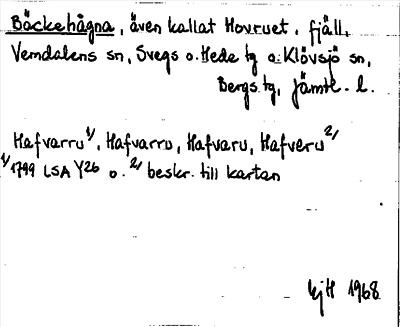 Böckehågna, även kallat Hovruet, fjäll,
Vemdalens sn, Svegs o. Hede tg o. Klövsjö sn,
Bergs tg, Jämtl. l.
Hafvarru 1/, Hafvarru, Hafvaru, Hafveru 2/
1/ 1799 LSA Y26 o. 2/ beskr. till kartan
EjH 1968